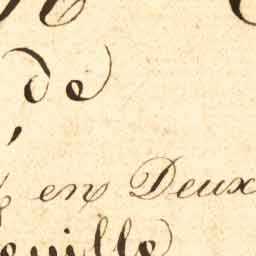 de
en Deux
euille